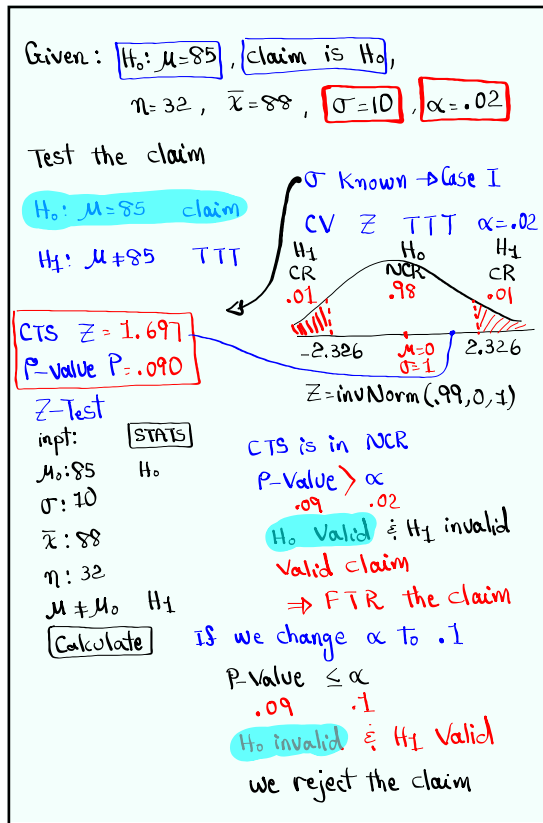 Given: H₀: μ=85, claim is H₀,
n=32, x̄=88, σ=10, α=.02
Test the claim
H₀: μ=85 claim
H₁: μ≠85 TTT
σ Known → Case I
CV Z TTT α=.02
H₁ H₀ H₁
CR NCR CR
.01 .98 .01
-2.326 μ=0 2.326
σ=1
Z=invNorm(.99,0,1)
CTS Z = 1.697
P-value P=.090
Z-Test
inpt: STATS
μ₀:85 H₀
σ:10
x̄:88
n:32
μ≠μ₀ H₁
Calculate
CTS is in NCR
P-Value > α
.09 .02
H₀ Valid & H₁ invalid
Valid claim
⇒ FTR the claim
If we change α to .1
P-Value ≤ α
.09 .1
H₀ invalid & H₁ Valid
we reject the claim